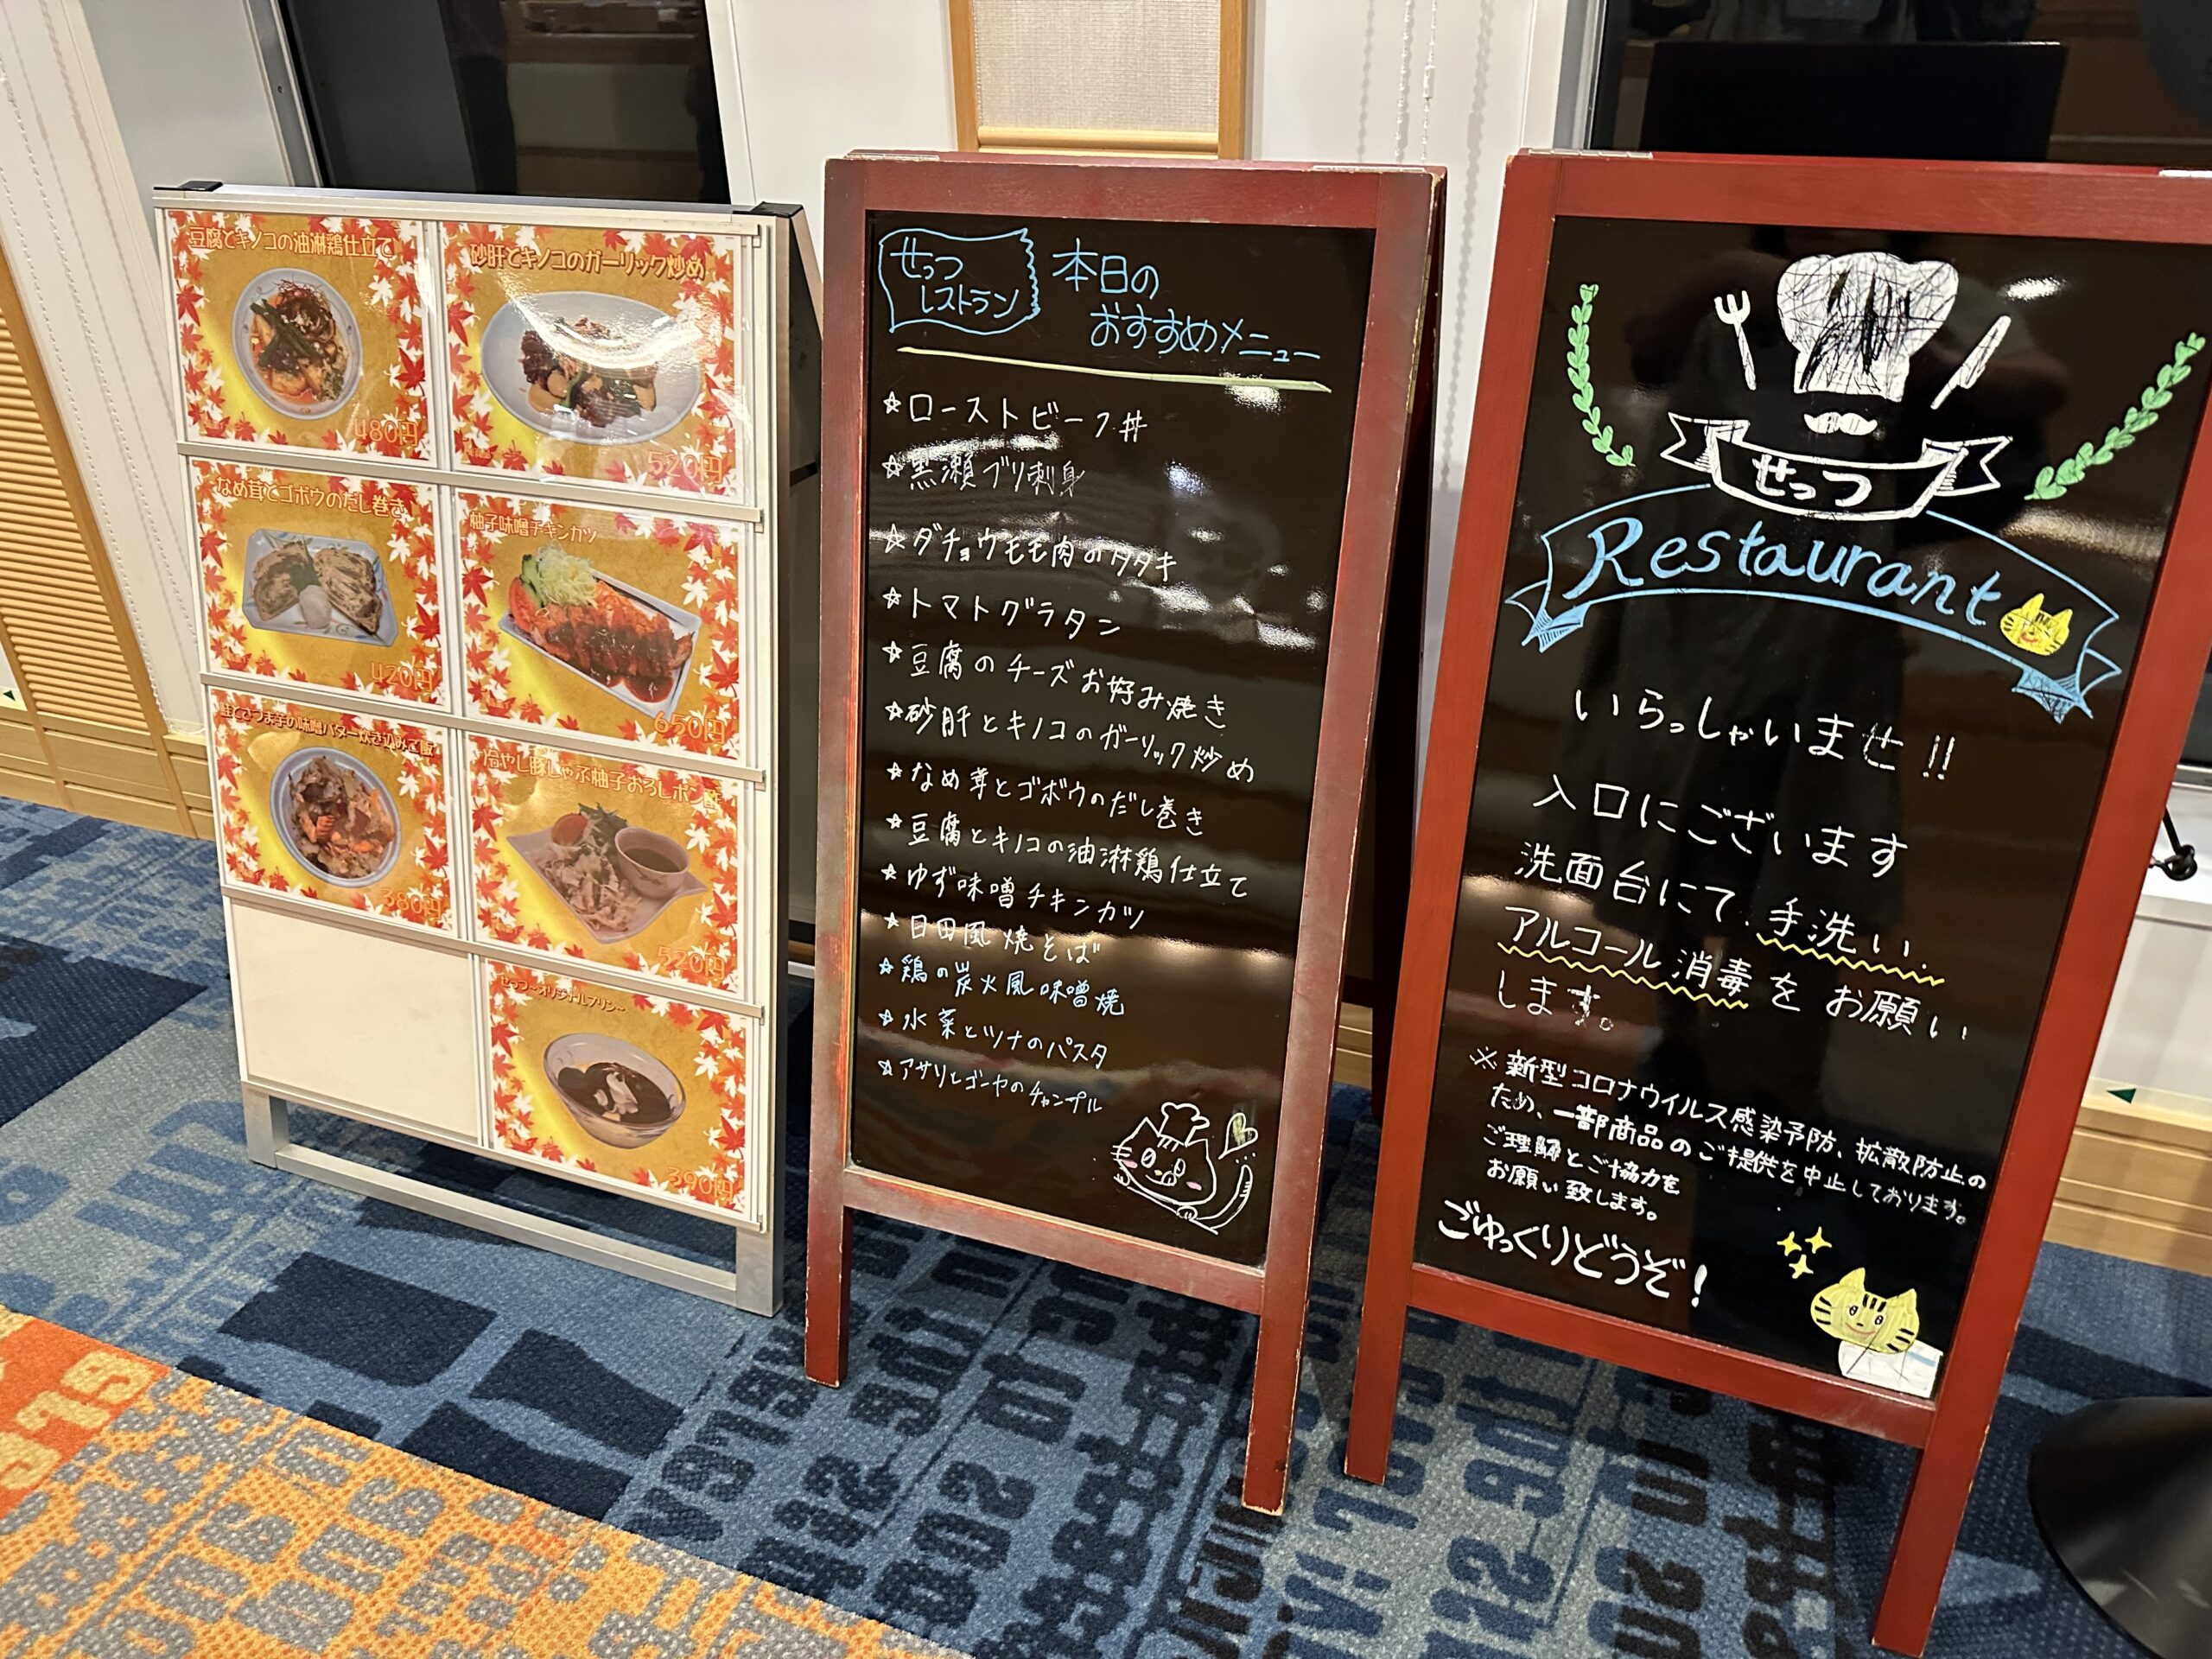 豆腐とキノコの油淋鶏仕立て
480円
砂肝とキノコのガーリック炒め
520円
なめ茸とゴボウのだし巻き
420円
柚子味噌チキンカツ
650円
鮭とさつま芋の味噌バター炊き込みご飯
380円
冷やし豚しゃぶ柚子おろしポン酢
520円
せっつ～オリジナルプリン～
390円
せっつ
レストラン
本日の
おすすめメニュー
☆ローストビーフ丼
☆黒瀬ブリ刺身
☆ダチョウモモ肉のタタキ
☆トマトグラタン
☆豆腐のチーズお好み焼き
☆砂肝とキノコのガーリック炒め
☆なめ茸とゴボウのだし巻き
☆豆腐とキノコの油淋鶏仕立て
☆ゆず味噌チキンカツ
☆日田風焼そば
☆鶏の炭火風味噌焼
☆水菜とツナのパスタ
☆アサリとゴーヤのチャンプル
せっつ
Restaurant
いらっしゃいませ!!
入口にございます
洗面台にて、手洗い、
アルコール消毒をお願い
します。
※新型コロナウイルス感染予防、拡散防止の
ため、一部商品のご提供を中止しております。
ご理解とご協力を
お願い致します。
ごゆっくりどうぞ!